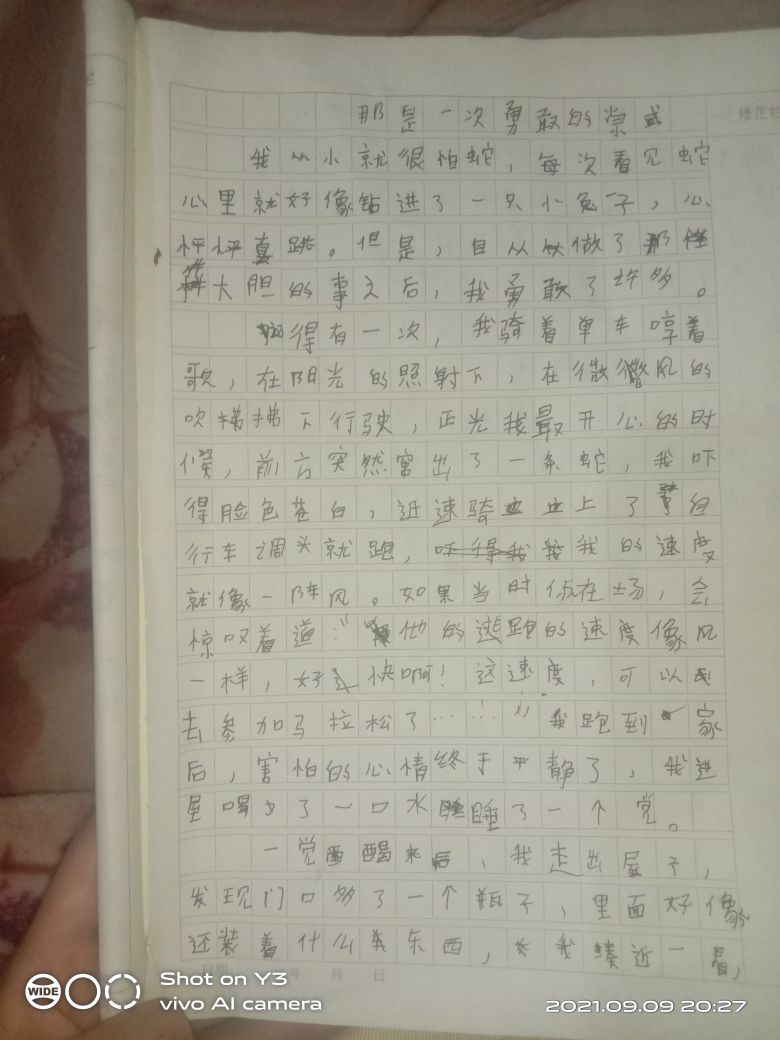 修正栏
那是一次勇敢的尝试
我从小就很怕蛇，每次看见蛇
心里就好像钻进了一只小兔子，心
怦怦直跳。但是，自从做了那件
大胆的事之后，我勇敢了许多。
记得有一次，我骑着单车哼着
歌，在阳光的照射下，在微微风的
吹拂拂下行驶，正光我最开心的时
候，前方突然窜出了一条蛇，我吓
得脸色苍白，迅速骑上了自
行车调头就跑，我的速度
就像一阵风。如果当时你在场，会
惊叹着道：“他的逃跑的速度像风
一样，好快啊！这速度，可以
去参加马拉松了……”我跑到家
后，害怕的心情终于平静了，我进
屋喝了一口水睡了一个觉。
一觉醒来后，我走出屋子，
发现门口多了一个瓶子，里面好像
还装着什么东西，我凑近一看，
年 月 日
WIDE
Shot on Y3
vivo AI camera
2021.09.09 20:27